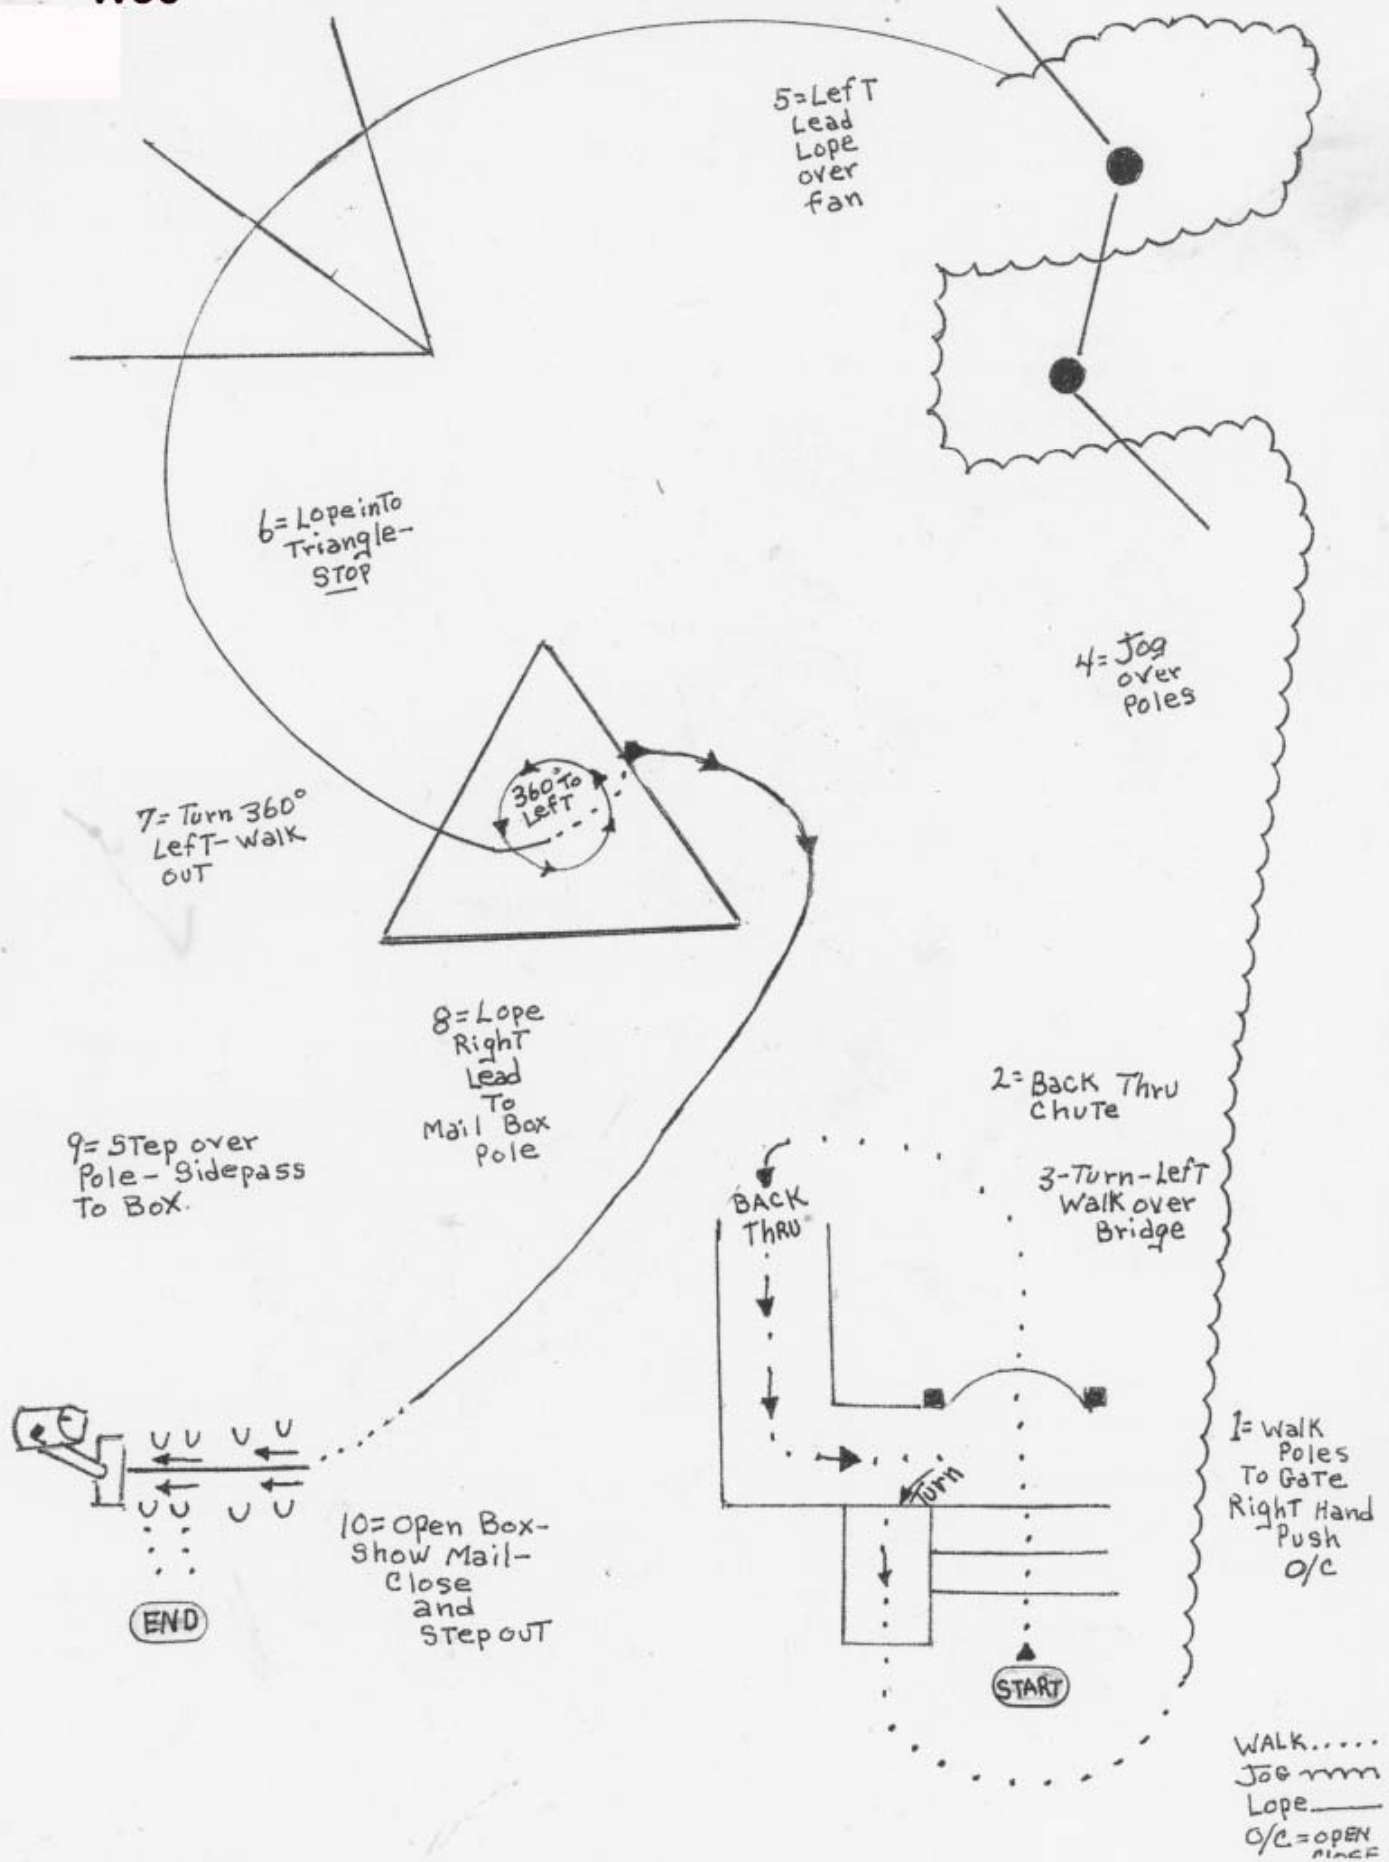 5=Left
Lead
Lope
over
fan
6=Lope into
Triangle-
STOP
4=Jog
over
Poles
360° To
Left
7=Turn 360°
Left-Walk
out
8=Lope
Right
Lead
To
Mail Box
Pole
2=Back Thru
Chute
9=Step over
Pole-Sidepass
To Box.
3-Turn-Left
Walk over
Bridge
BACK
THRU
1=Walk
Poles
To Gate
Right Hand
Push
O/C
Turn
10=Open Box-
Show Mail-
Close
and
Step out
END
START
WALK.....
JOG
Lope
O/C=OPEN